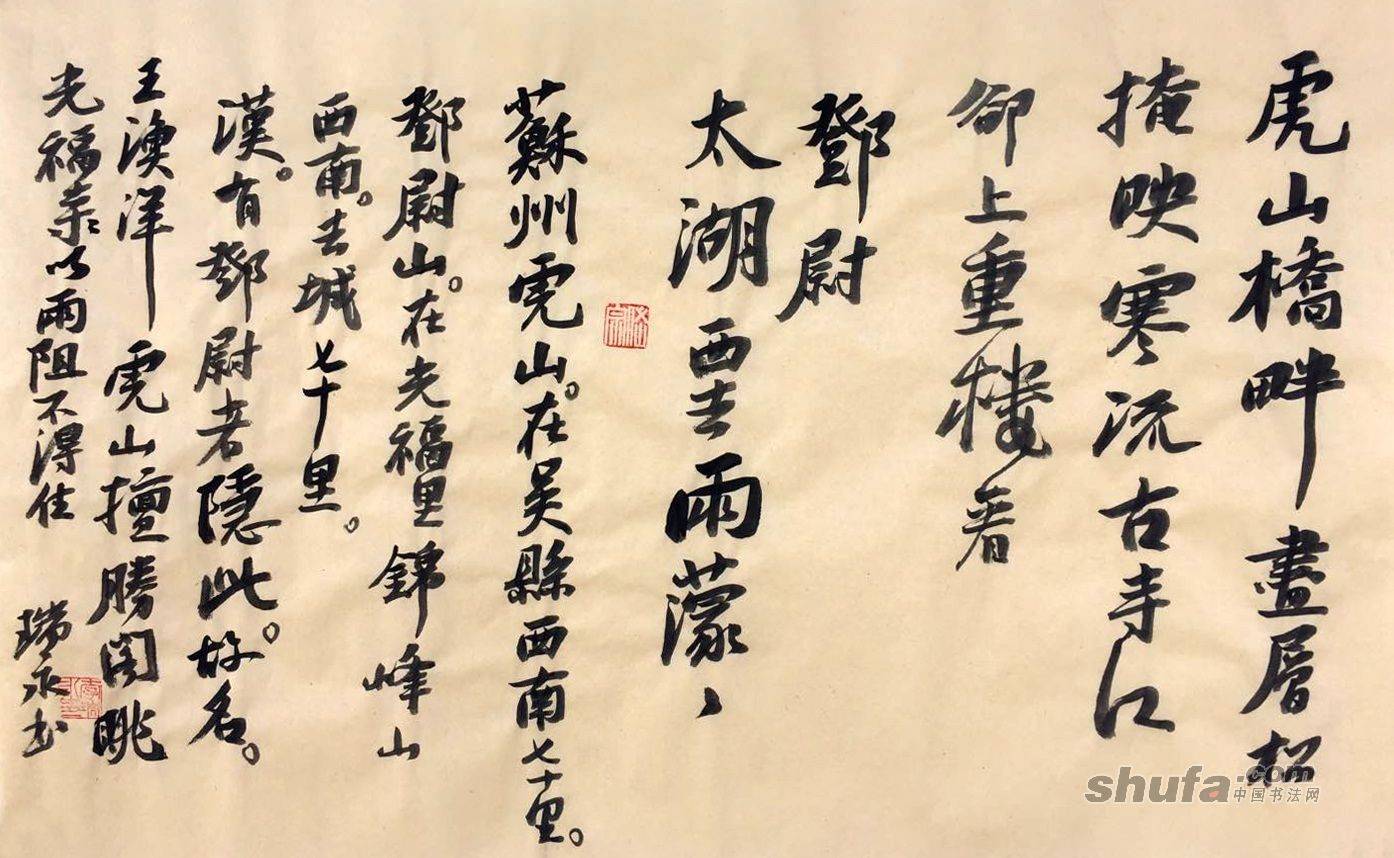 虎山橋畔盡層松
掩映寒流古寺紅
卻上重樓看
鄧尉
太湖西去雨濛〻
蘇州虎山。在吳縣西南七十里。
鄧尉山。在光福里錦峰山
西南。去城七十里。
漢。有鄧尉者隱此。故名。
王漁洋 虎山擅勝閣眺
光福以雨阻不得往 瑞永书
shufa.com
中国书法网